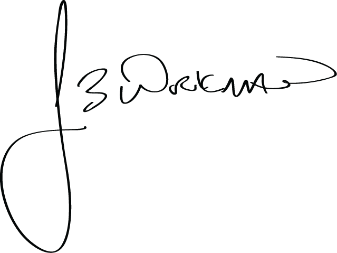 J B Workman